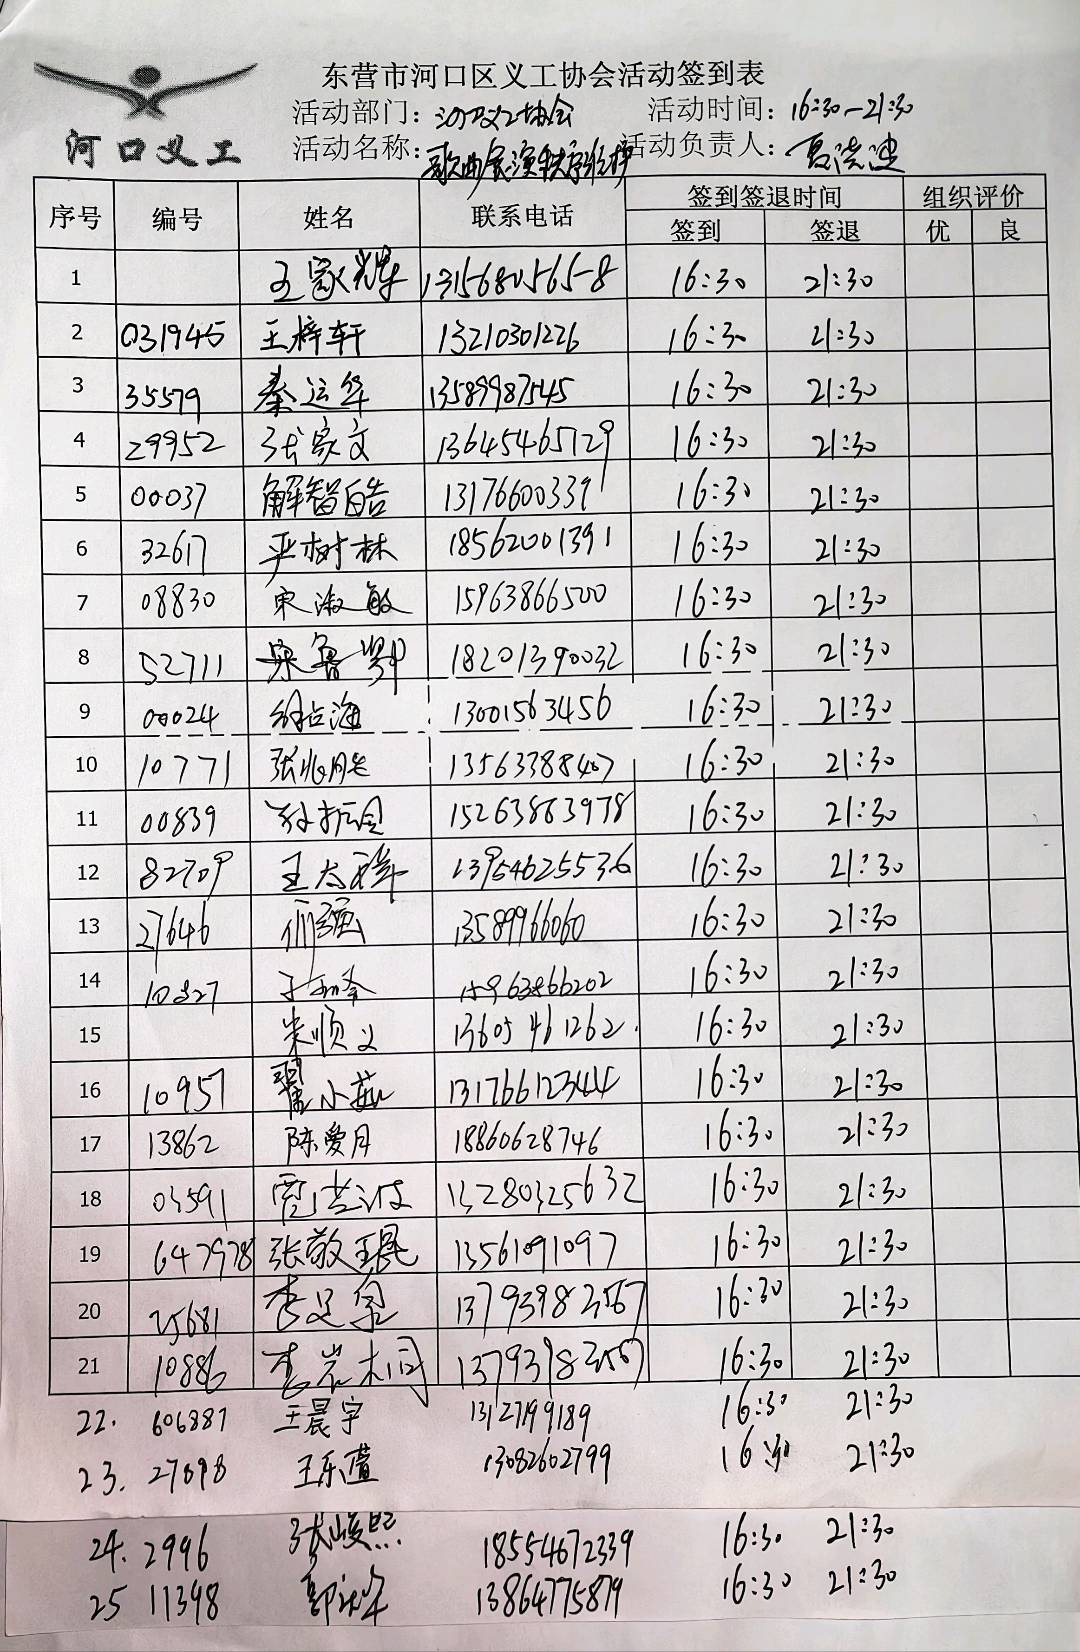 东营市河口区义工协会活动签到表
河口义工
活动部门：河口义工协会 活动时间：16:30—21:30
活动名称：歌曲展演秩序维护 活动负责人：
序号 编号 姓名 联系电话 签到签退时间 组织评价
签到 签退 优 良
1 王家辉 13156801565-8 16:30 21:30
2 031945 王梓轩 13210301226 16:30 21:30
3 35579 秦运华 13589987545 16:30 21:30
4 29952 张家文 13645465729 16:30 21:30
5 00037 解智皓 13176600339 16:30 21:30
6 32617 严树林 18562001391 16:30 21:30
7 08830 宋淑敏 15963866500 16:30 21:30
8 52711 宋鲁 18201390032 16:30 21:30
9 00024 徐占海 13001563456 16:30 21:30
10 10771 张兆胜 13563388407 16:30 21:30
11 00839 15263863978 16:30 21:30
12 82709 王太祥 13954625536 16:30 21:30
13 27646 13589966060 16:30 21:30
14 10827 15963866202 16:30 21:30
15 朱顺义 13605461262 16:30 21:30
16 10957 翟小燕 13176612344 16:30 21:30
17 13862 陈爱月 18860628746 16:30 21:30
18 03591 13280325632 16:30 21:30
19 647978 张敬琨 13561091097 16:30 21:30
20 25681 李足泉 13793983567 16:30 21:30
21 10886 李岩桐 13793983567 16:30 21:30
22. 606887 王晨宇 13127199189 16:30 21:30
23. 27698 王乐萱 13082602799 16:30 21:30
24. 2996 张峻熙 18554672339 16:30 21:30
25 11398 13864775879 16:30 21:30